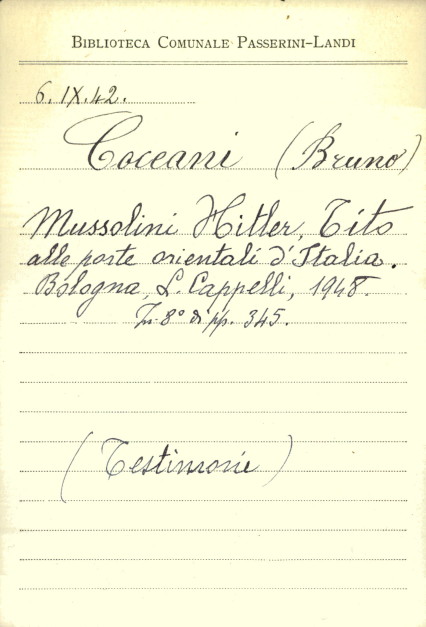 BIBLIOTECA COMUNALE PASSERINI-LANDI
6.IX.42.
Coceani (Bruno)
Mussolini Hitler, Tito
alle porte orientali d'Italia.
Bologna, L. Cappelli, 1948.
In 8° di pp. 345.
(Testimonie)